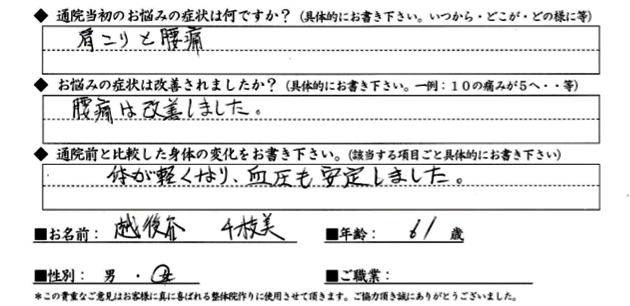 ◆ 通院当初のお悩みの症状は何ですか？（具体的にお書き下さい。いつから・どこが・どの様に等）
肩こりと腰痛
◆ お悩みの症状は改善されましたか？（具体的にお書き下さい。一例：１０の痛みが５へ・・等）
腰痛は改善しました。
◆ 通院前と比較した身体の変化をお書き下さい。（該当する項目ごと具体的にお書き下さい）
体が軽くなり、血圧も安定しました。
■お名前： 越後谷 千枝美 ■年齢： 61 歳
■性別： 男 ・ 女 ■ご職業：
＊この貴重なご意見はお客様に真に喜ばれる整体院作りに使用させて頂きます。ご協力頂き誠にありがとうございました。